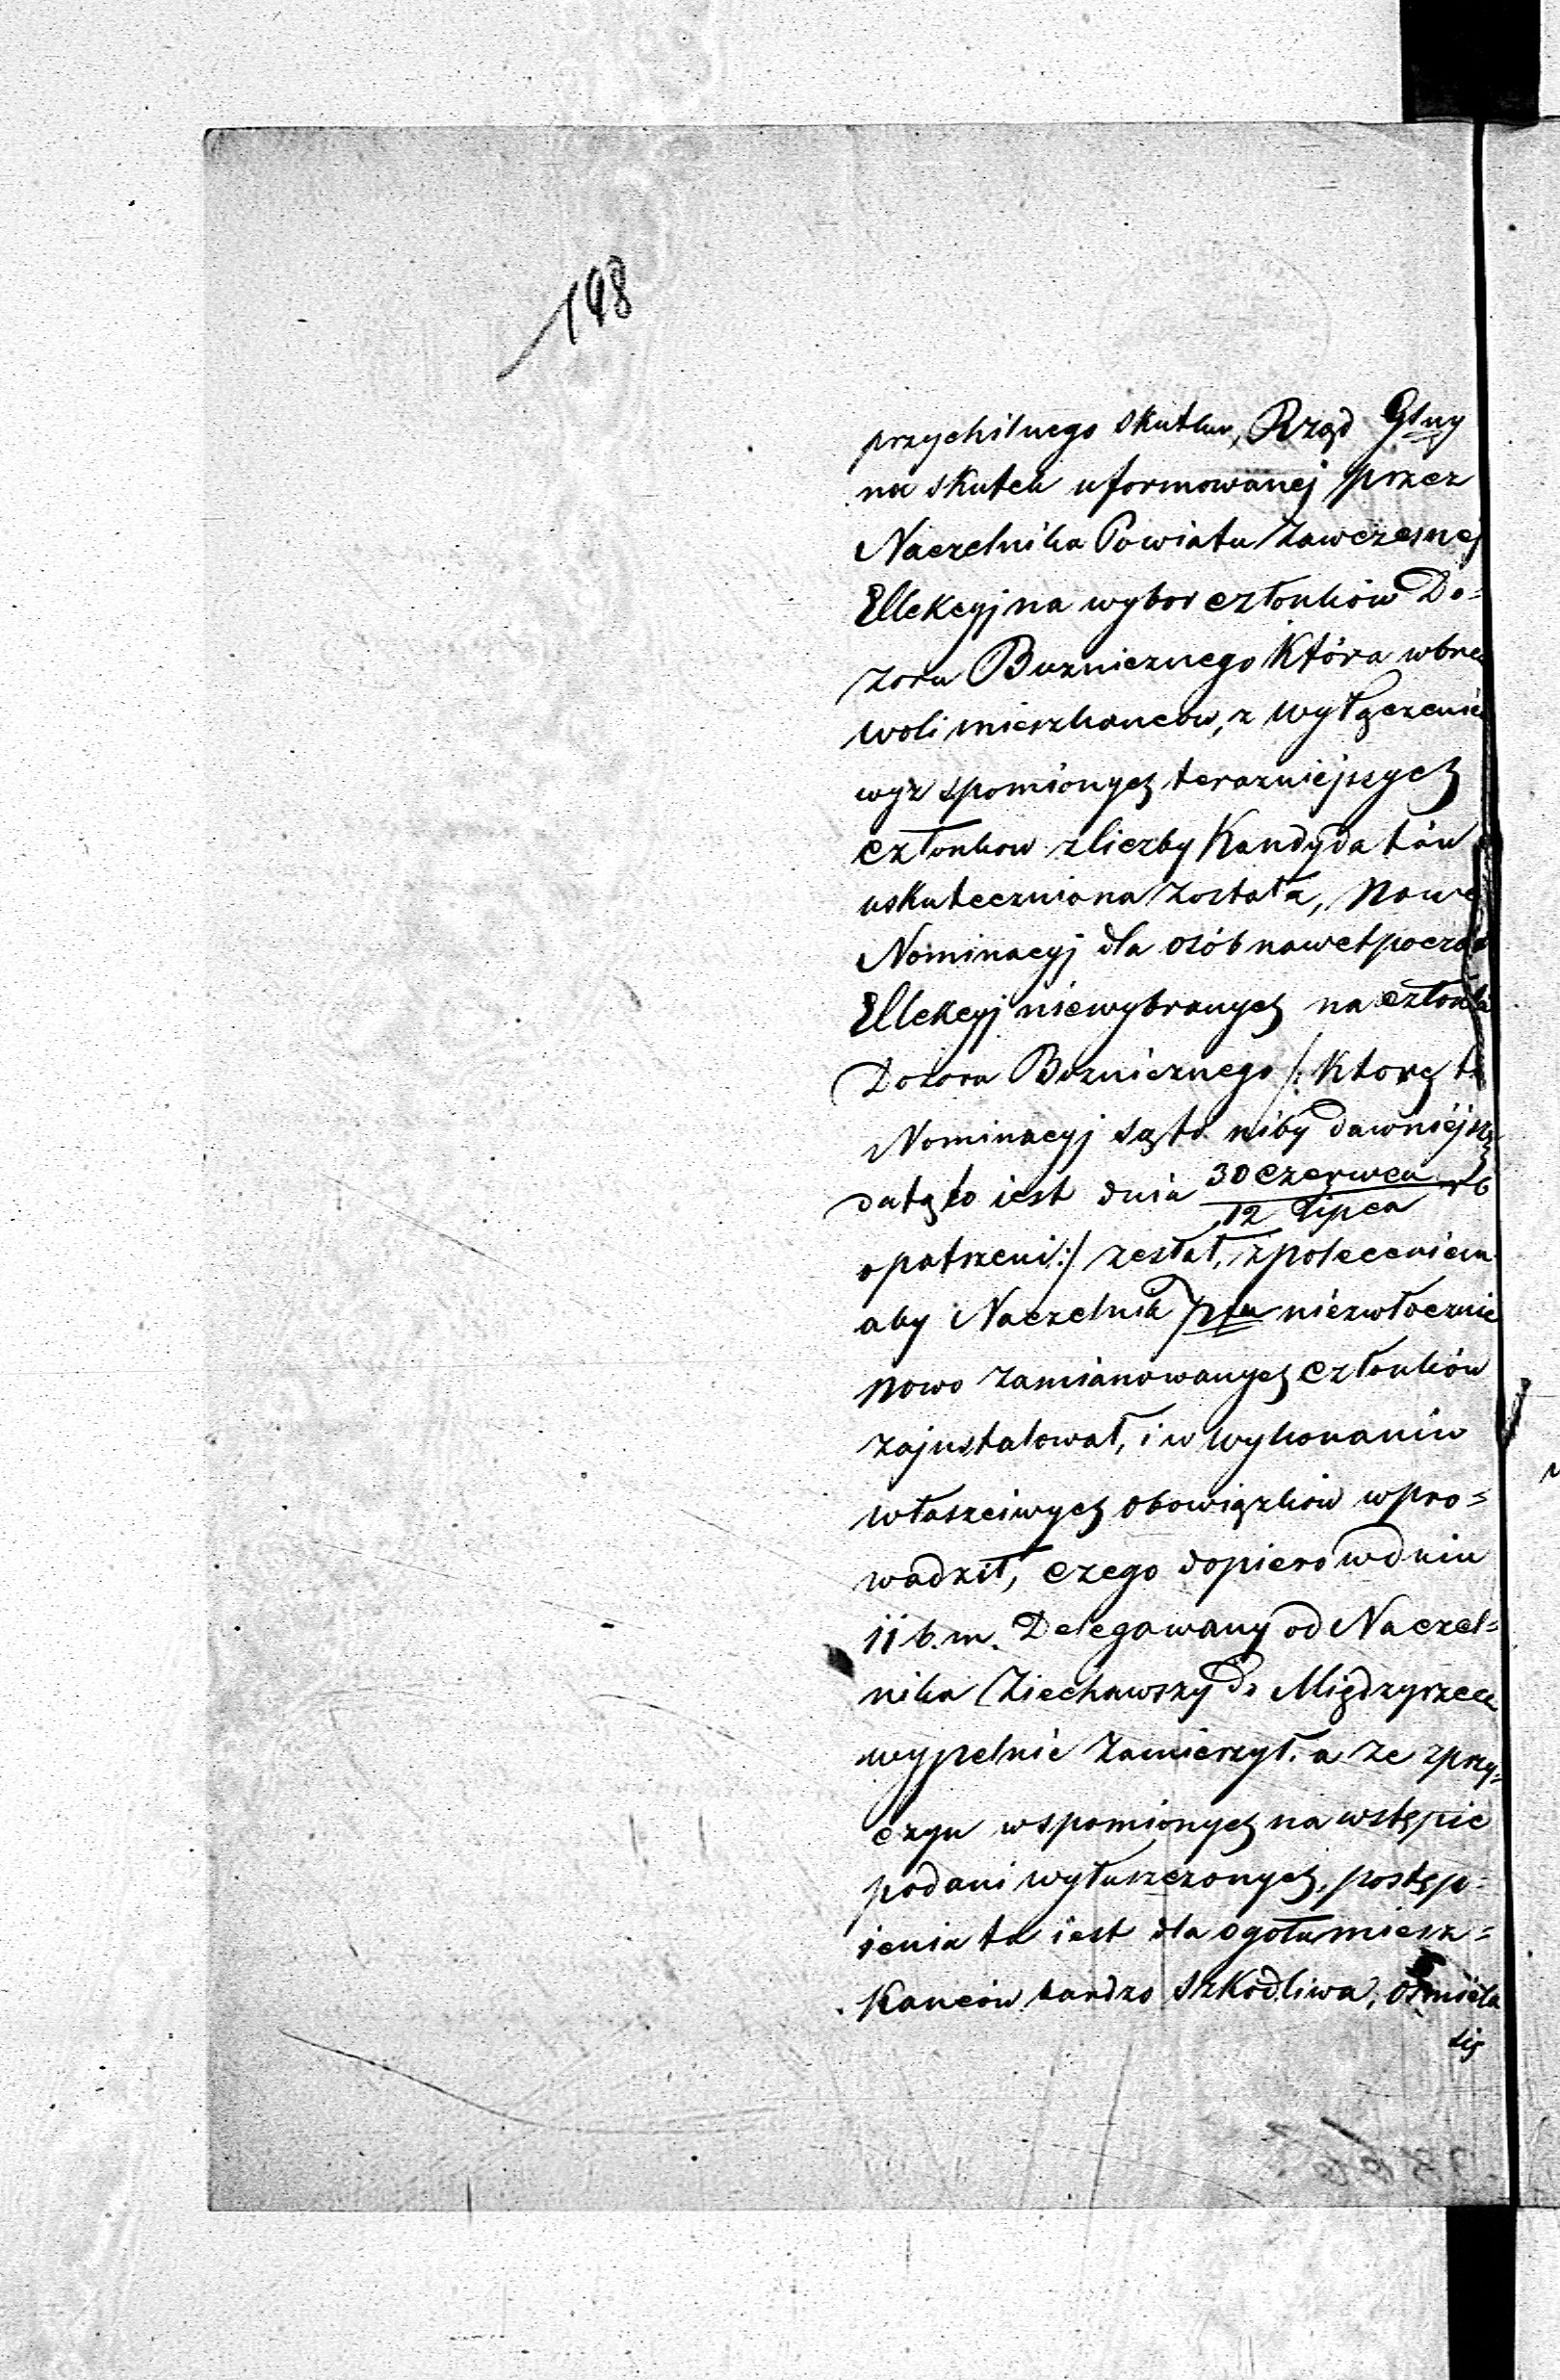 198
przychilnego skutku, Rząd Glny
na skutek uformowanej przez
Naczelnika Powiatu Zawczesnej
Ellekcyj na wybor członków Do=
zoru Bużnicznego która wbre
woli mieszkancow, z wyłączenie
wyz spomionych terazniejszych
członkow z liczby Kandydatów
uskuteczniona została, Nowe
Nominacyj dla osób nawet poczas
Ellekcyj niewybranych na członka
Dozoru Boznicznego /: Którę te
Nominacyj są to niby dawniejszą
datą to iest dnia 30 Czerwca rb
12 Lipca
opatrzeni :/ zesłał, z poleceniem
aby Naczelnik Ptu niezwłocznie
nowo zamianowanych Członków
zajnstalował, i w wykonaniu
właszciwych obowiązków wpro=
wadził, czego dopiero w dniu
11 b. m. Delegowany od Naczel=
nika Ziechawszy do Międzyrzeca
wypelnic zamierzył. a ze z przy=
czyn wspomionych na wstępie
podani wyłuszczonych, postęp=
ienia ta iest dla ogołu miesz=
Kanców bardzo szkodliwa, osmiela
się